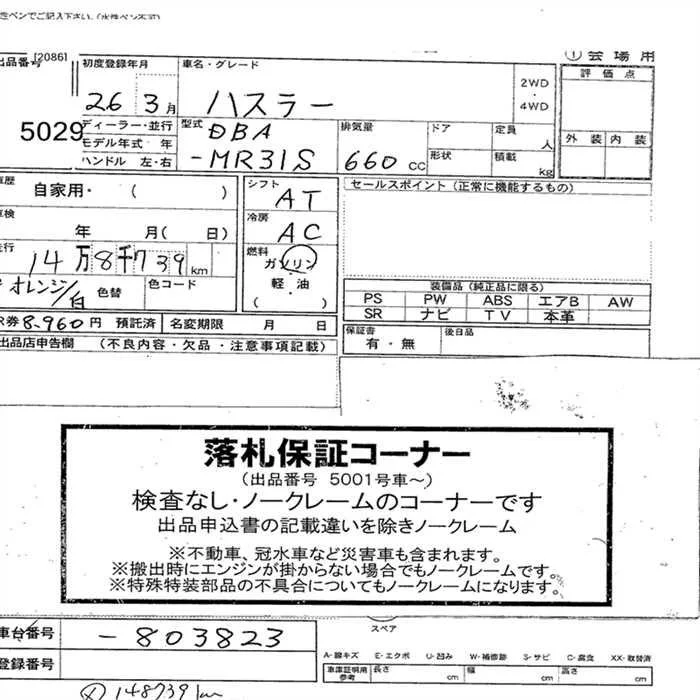 性ペンでご記入下さい。(水性ペン不可)
出品番号 [2086]
5029
初度登録年月
26 3月
車名・グレード
ハスラー
2WD
・
4WD
① 会場用
評価点
外装 内装
ディーラー・並行
モデル年式 年
ハンドル 左・右
型式
DBA
-MR31S
排気量
660 CC
ドア
形状
定員
人
積載
kg
車歴
自家用・ ( )
車検
年 月( 日)
走行
14万8千739 km
オレンジ/白 色替
色コード
R券 8,960円 預託済
名変期限 月 日
シフト
AT
冷房
AC
燃料
ガソリン
軽・油
( )
セールスポイント(正常に機能するもの)
装備品(純正品に限る)
PS PW ABS エアB AW
SR ナビ TV 本革
保証書
有・無
後日品
出品店申告欄 (不良内容・欠品・注意事項記載)
落札保証コーナー
(出品番号 5001号車～)
検査なし・ノークレームのコーナーです
出品申込書の記載違いを除きノークレーム
※不動車、冠水車など災害車も含まれます。
※搬出時にエンジンが掛からない場合でもノークレームです。
※特殊特装部品の不具合についてもノークレームになります。
車台番号
-803823
登録番号
スペア
A-線キズ E-エクボ U-凹み W-補修跡 S-サビ C-腐食 XX-取替済
車庫証明用
参考
長さ cm
幅 cm
高さ cm
148739km